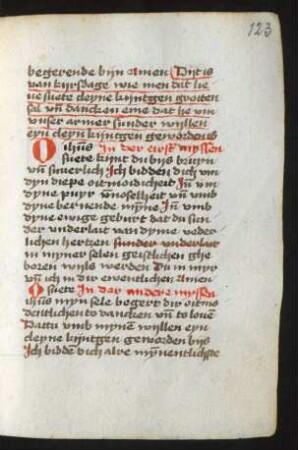 123
begerende byn Amen Dyt is
van kyrsdage wie men dat lie
ue suete cleyne kyntgen groiten
sal vn̄ dancken eme dat he vm
vnser armer sunder wyllen
eyn cleyn kyntgen geworden is
O ihūs In der eirst myssen
suete kynt du bys bruyn
vn̄ suuerlich Ich bidden dich vm
dyn diepe oitmoidicheit Jn vm
dyne puyr vnoselheit vn̄ vmb
dyne bernende mynne Jn vmb
dyne ewige geburt dat du sun
der vnderlaiss van dyme veder
lichen hertzen sunder vnderlaiss
in myner selen geistlichen ghe
boren wils werden Du in myr
vn̄ ich in dir ewentlichen Amen
O suete In der andere myssen
ihūs myn sele begert dir oitmo
dentlichen to dancken vn̄ to louē
Dattu vmb mynen wyllen eyn
cleyne kyntgen geworden bys
Ich biddē dich alre mynentlichste